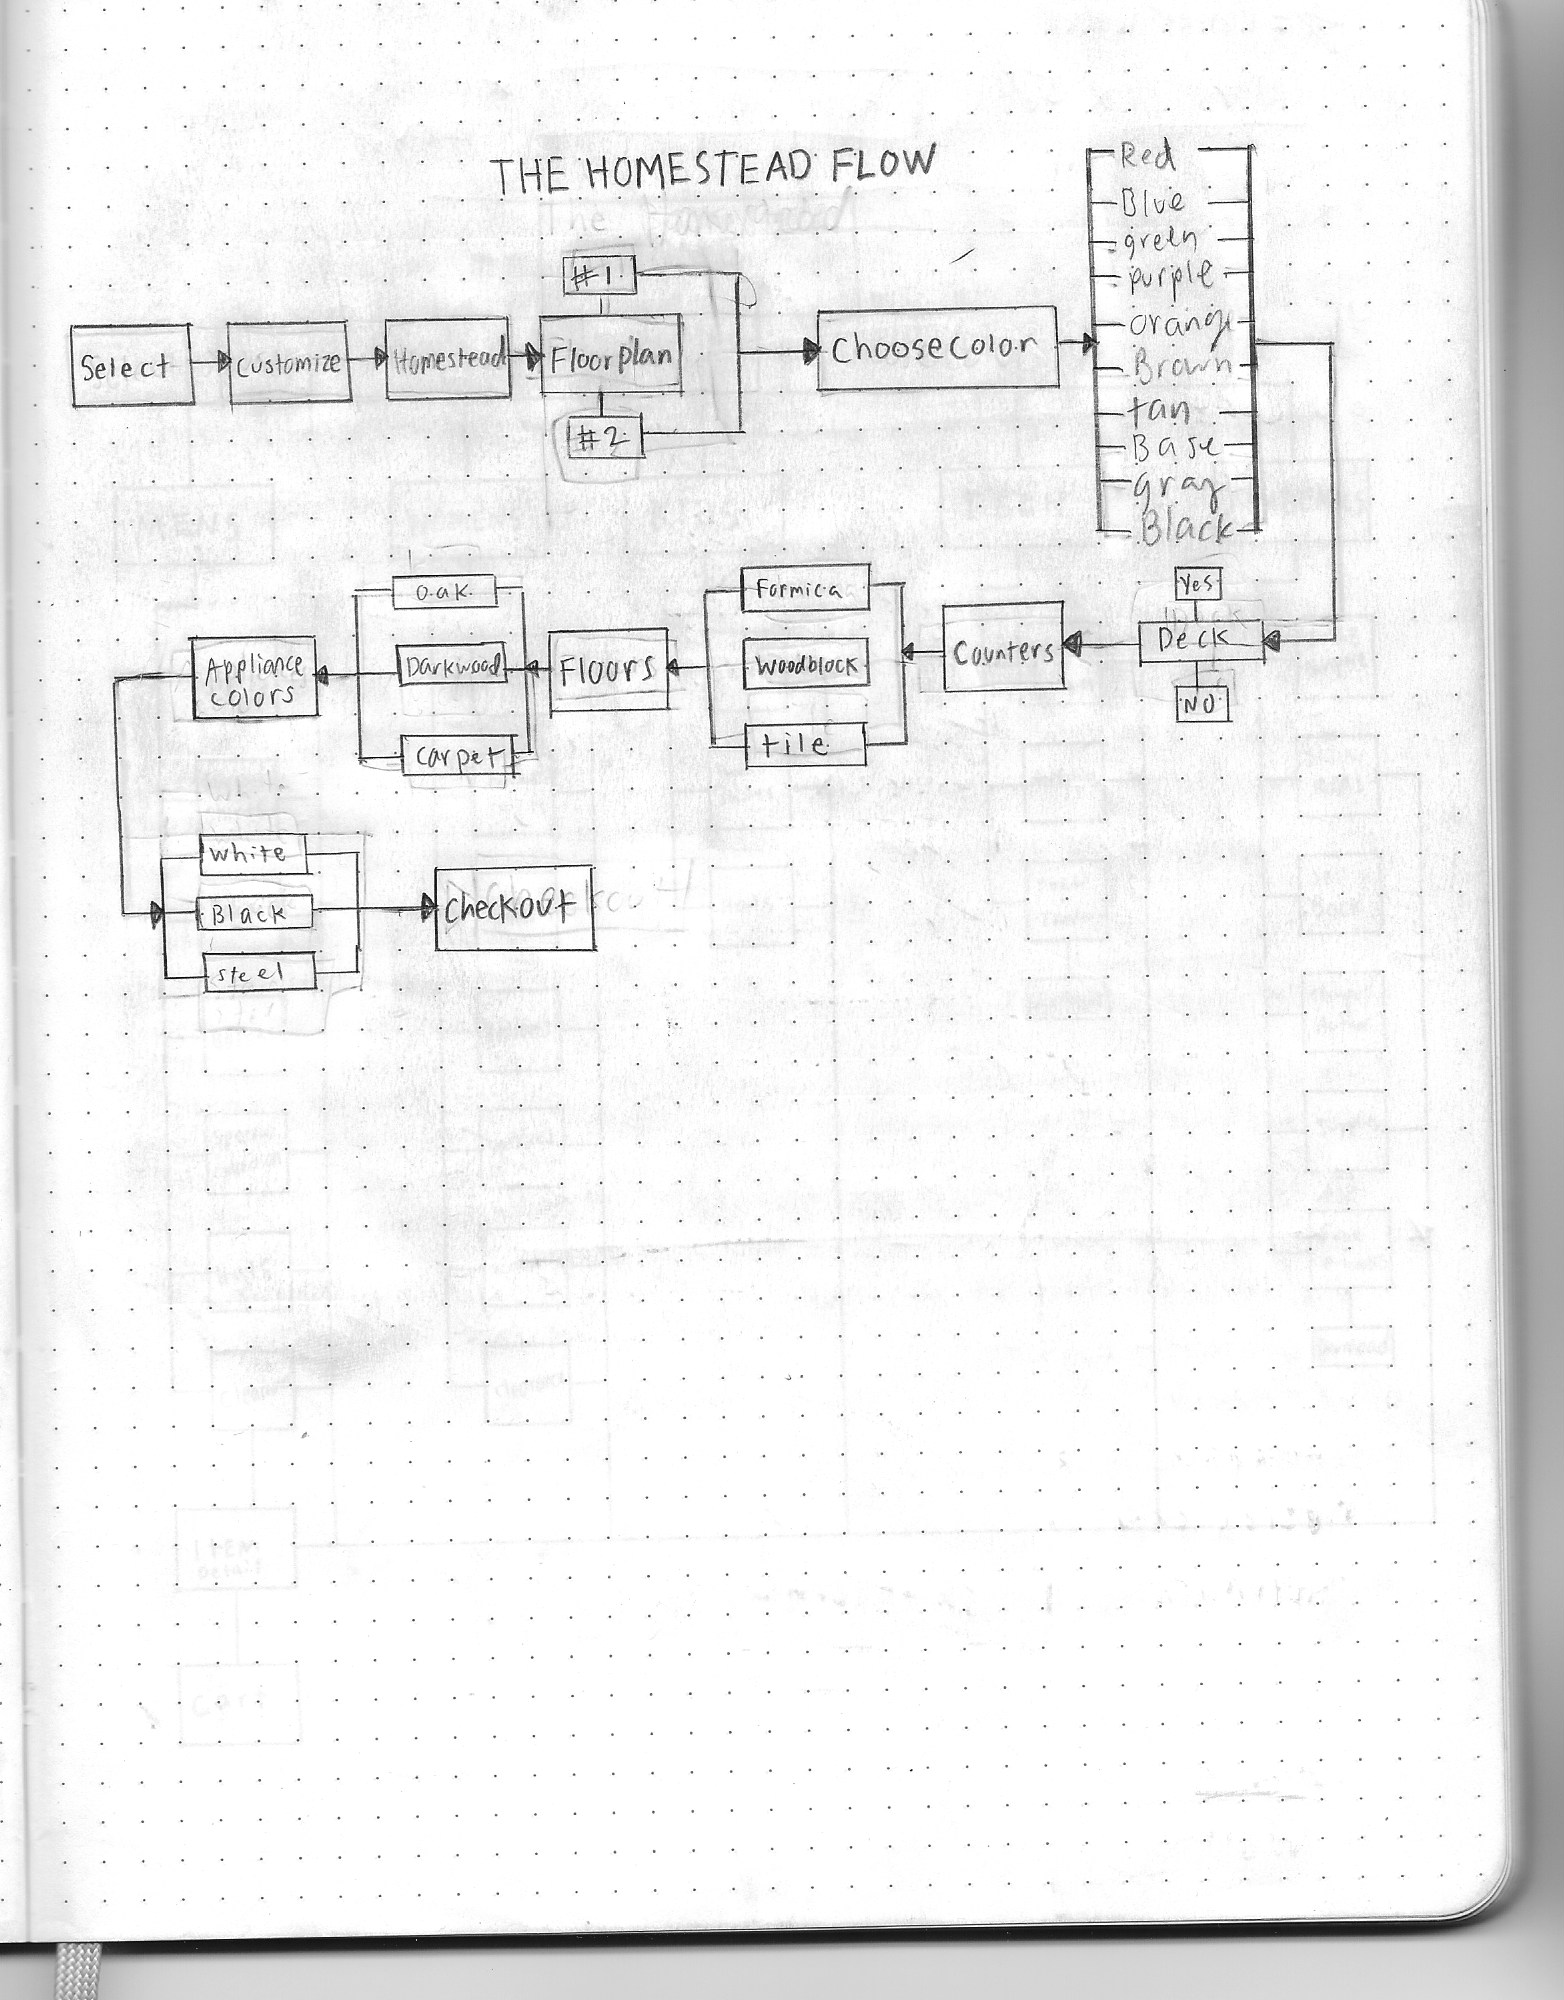 THE HOMESTEAD FLOW
Select
Customize
Homestead
Floorplan
#1
#2
Choose Color
Red
Blue
green
purple
orange
Brown
tan
Base
gray
Black
Yes
Deck
NO
Counters
Formica
Woodblock
tile
Floors
oak
Darkwood
carpet
Appliance
colors
white
Black
steel
Checkout